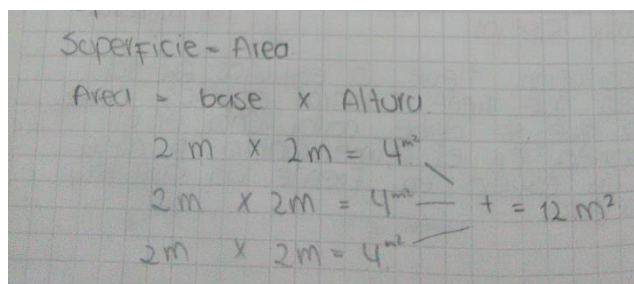 Superficie = Area
Area = base x Altura
2 m x 2m = 4 m²
2m x 2m = 4 m² + = 12 m²
2m x 2m = 4 m²